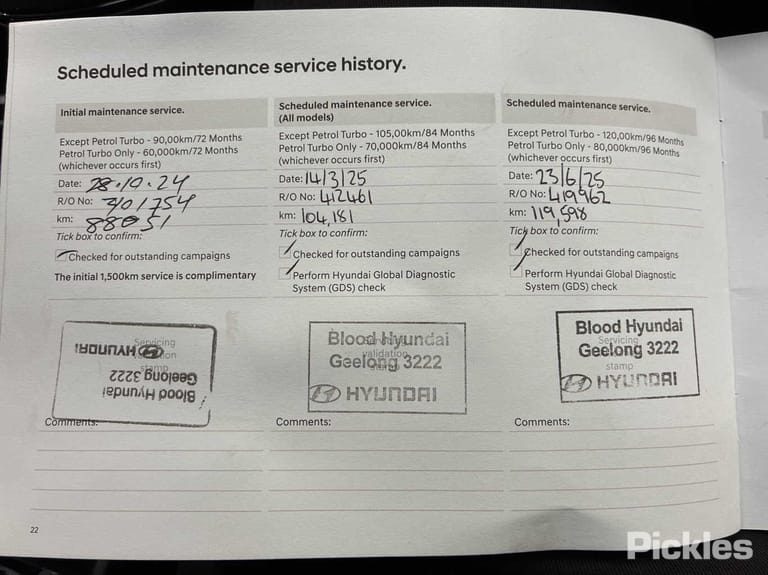 Scheduled maintenance service history.
Initial maintenance service.
Except Petrol Turbo - 90,00km/72 Months
Petrol Turbo Only - 60,000km/72 Months
(whichever occurs first)
Date: 28.10.24
R/O No: 401754
km: 88051
Tick box to confirm:
Checked for outstanding campaigns
The initial 1,500km service is complimentary
Servicing
validation
stamp
Blood Hyundai
Geelong 3222
HYUNDAI
Comments:
Scheduled maintenance service.
(All models)
Except Petrol Turbo - 105,00km/84 Months
Petrol Turbo Only - 70,000km/84 Months
(whichever occurs first)
Date: 14/3/25
R/O No: 412461
km: 104,181
Tick box to confirm:
Checked for outstanding campaigns
Perform Hyundai Global Diagnostic
System (GDS) check
Servicing
validation
stamp
Blood Hyundai
Geelong 3222
HYUNDAI
Comments:
Scheduled maintenance service.
Except Petrol Turbo - 120,00km/96 Months
Petrol Turbo Only - 80,000km/96 Months
(whichever occurs first)
Date: 23/6/25
R/O No: 419962
km: 119,598
Tick box to confirm:
Checked for outstanding campaigns
Perform Hyundai Global Diagnostic
System (GDS) check
Blood Hyundai
Servicing
Geelong 3222
stamp
HYUNDAI
Comments:
22
Pickles